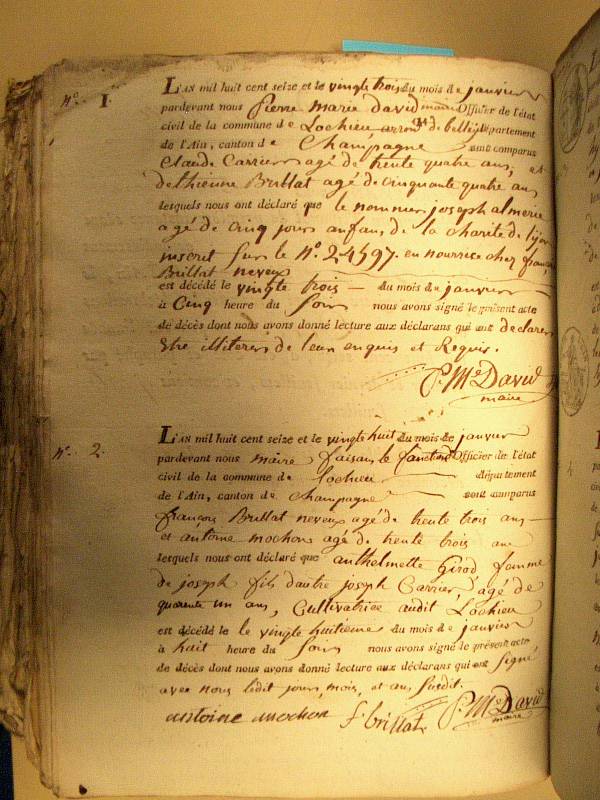 N.° 1.
L'AN mil huit cent seize et le vingte trois du mois de janvier
pardevant nous Pierre marie david maire Officier de l'état
civil de la commune de Lochieu arron.t de belley département
de l'Ain, canton de Champagne sont comparus
Claude Carrier agé de trente quatre ans, et
dethienne Brillat agé de cinquante quatre ans
lesquels nous ont déclaré que le nommer joseph almerie
agé de cinq jours anfans de la charité de lyon
inscrit sur le N.° 24597. en nourrice chez françois
Brillat neveux
est décédé le vingte trois du mois de janvier
à Cinq heure du Soir nous avons signé le présent acte
de décès dont nous avons donné lecture aux déclarans qui ont declarer
Etre illiterer de leur enquis et Requis.
P. M.e David
maire
N.° 2.
L'AN mil huit cent seize et le vingte huit du mois de janvier
pardevant nous maire faisan le fonctions Officier de l'état
civil de la commune de Lochieu département
de l'Ain, canton de Champagne sont comparus
françois Brillat neveux agé de trente trois ans
et antoine mochon agé de trente trois ans
lesquels nous ont déclaré que anthelmette Girod famme
de joseph fils dautre joseph Carrier, agé de
quarente un ans, Cultivatrice audit Lochieu
est décédé le le vingte huitieme du mois de janvier
à huit heure du Soir nous avons signé le présent acte
de décès dont nous avons donné lecture aux déclarans qui ont signé
avec nous ledit jours, mois, et an susdit.
antoine mochon f. brillat P. M.e David
maire